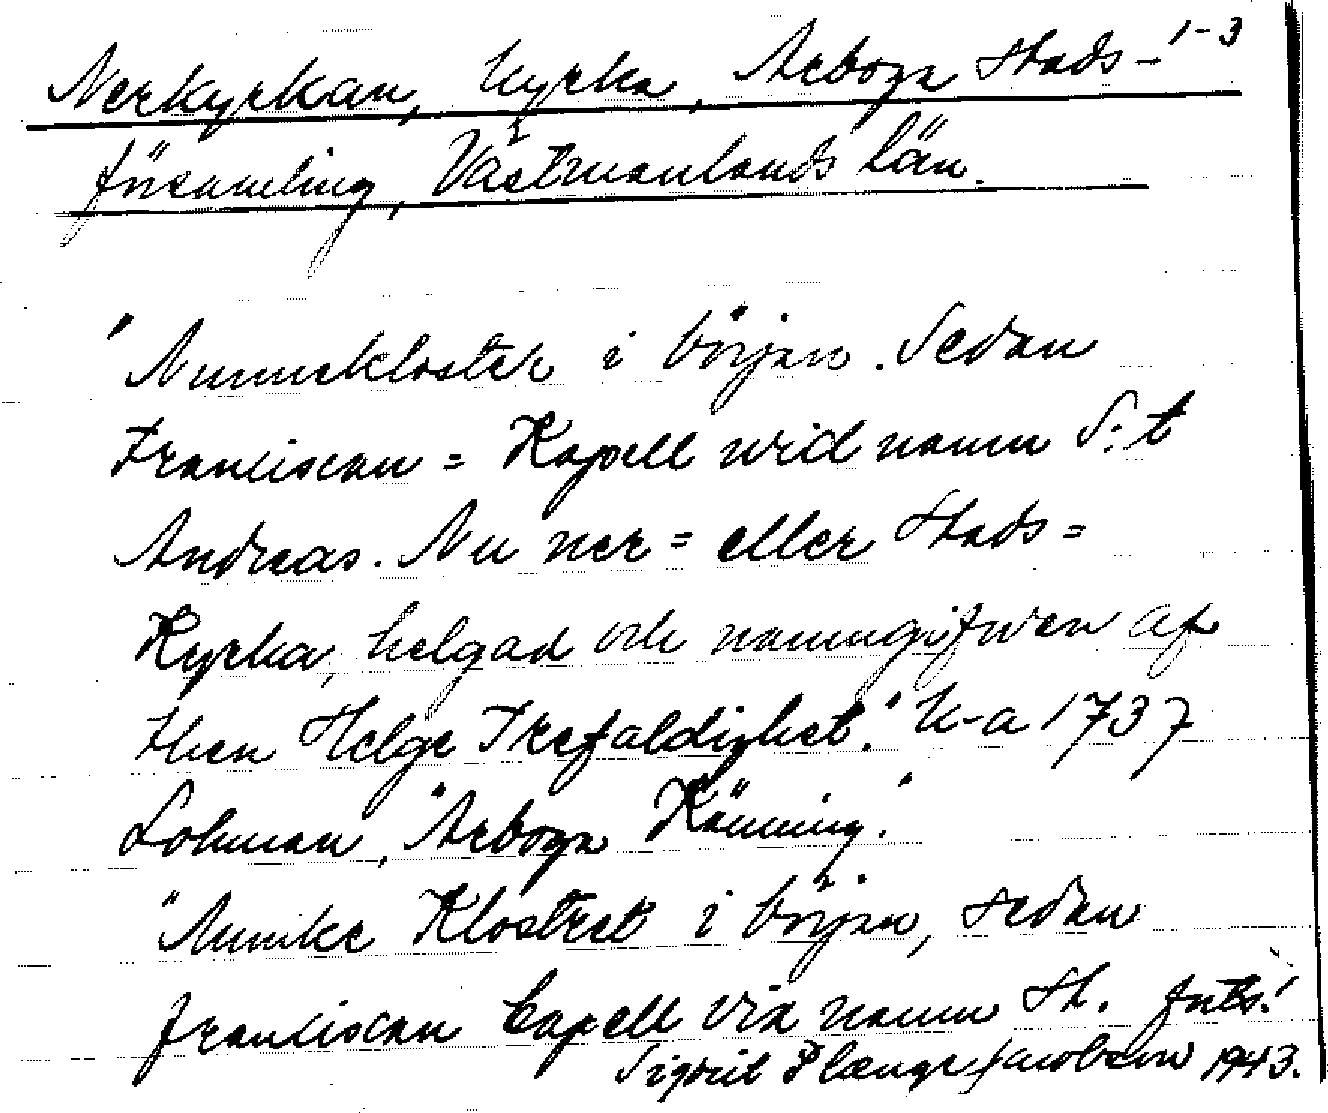 Nerkyrkan, kyrka, Arboga Stads- 1-3
församling, Västmanlands län.
"Munnekloster i början. Sedan
Franciscan = Kapell wid namn S:t
Andreas. Nu ner = eller Stads =
Kyrka, helgad och namngifwen af
then Helge Trefaldighet." k-a 1737
Lohman, "Arboga Känning."
"Munike Klostret i början, sedan
franciscan Capell vid namn St. forts!
Sigrid Plænge Jacobson 1943.